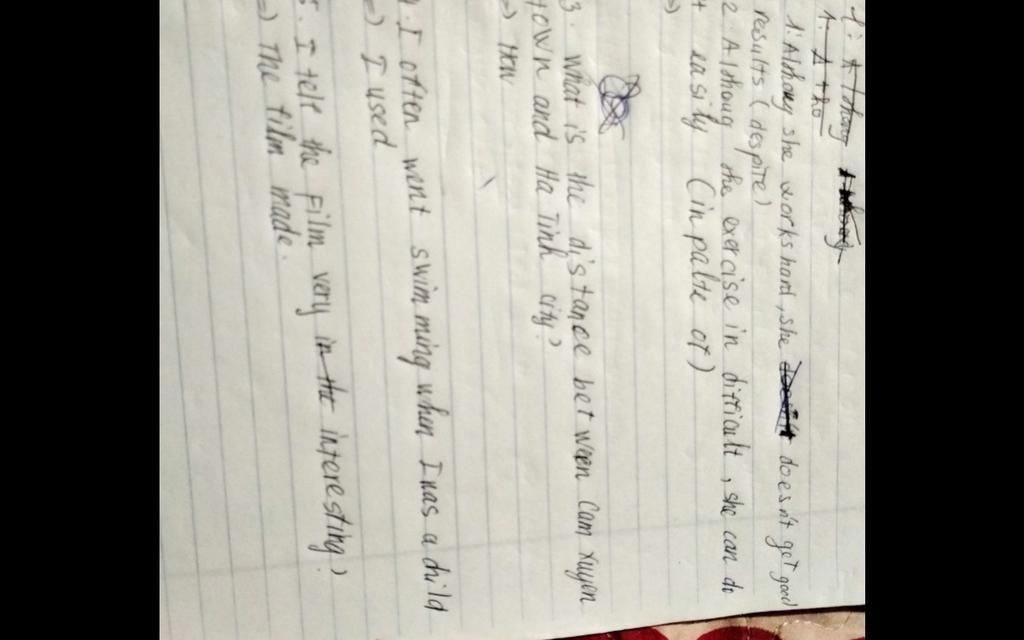 1. Althoug she works hard, she doesn't get good
results (despite)
2. Althoug the exercise in difficult, she can do
it easily (in palte of)
=)
3. what is the distance between Cam xuyen
town and Ha Tinh city?
=) How
4. I often went swimming when I was a child
=) I used
5. I felt the film very interesting?
=) The film made.